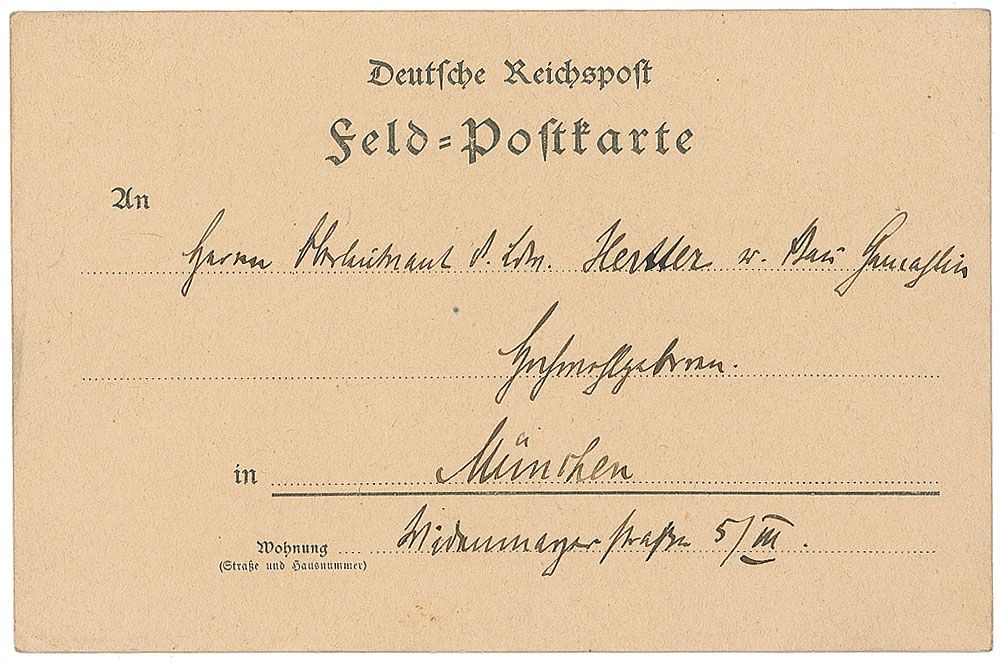 Deutsche Reichspost
Feld-Postkarte
An
Herrn Oberleutnant d. Hertter Gemahlin
Hochwohlgeboren.
in München
Wohnung Widenmayerstraße 5/III.
(Straße und Hausnummer)